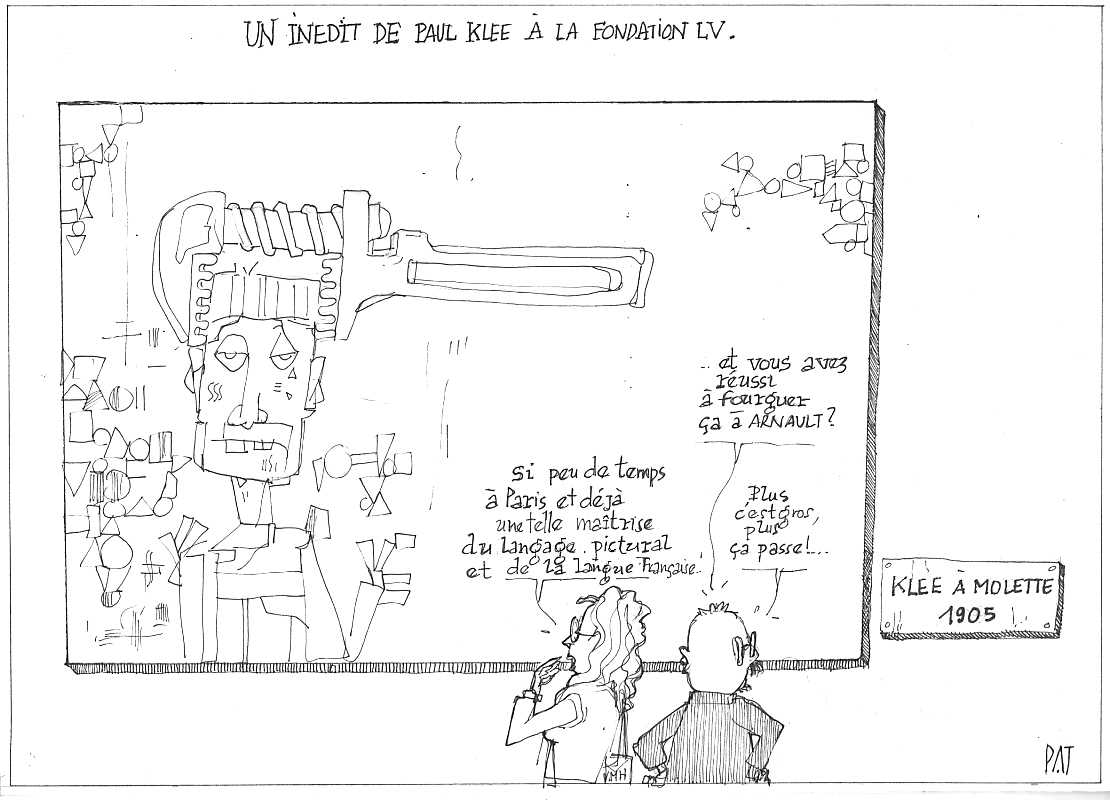 UN INEDIT DE PAUL KLEE À LA FONDATION LV.
.. et vous avez
réussi
à fourguer
ça à ARNAULT?
Si peu de temps
à Paris et déjà
une telle maîtrise
du langage pictural
et de la langue Française..
Plus
c'est gros,
plus
ça passe!...
KLEE À MOLETTE
1905
MH
PAT